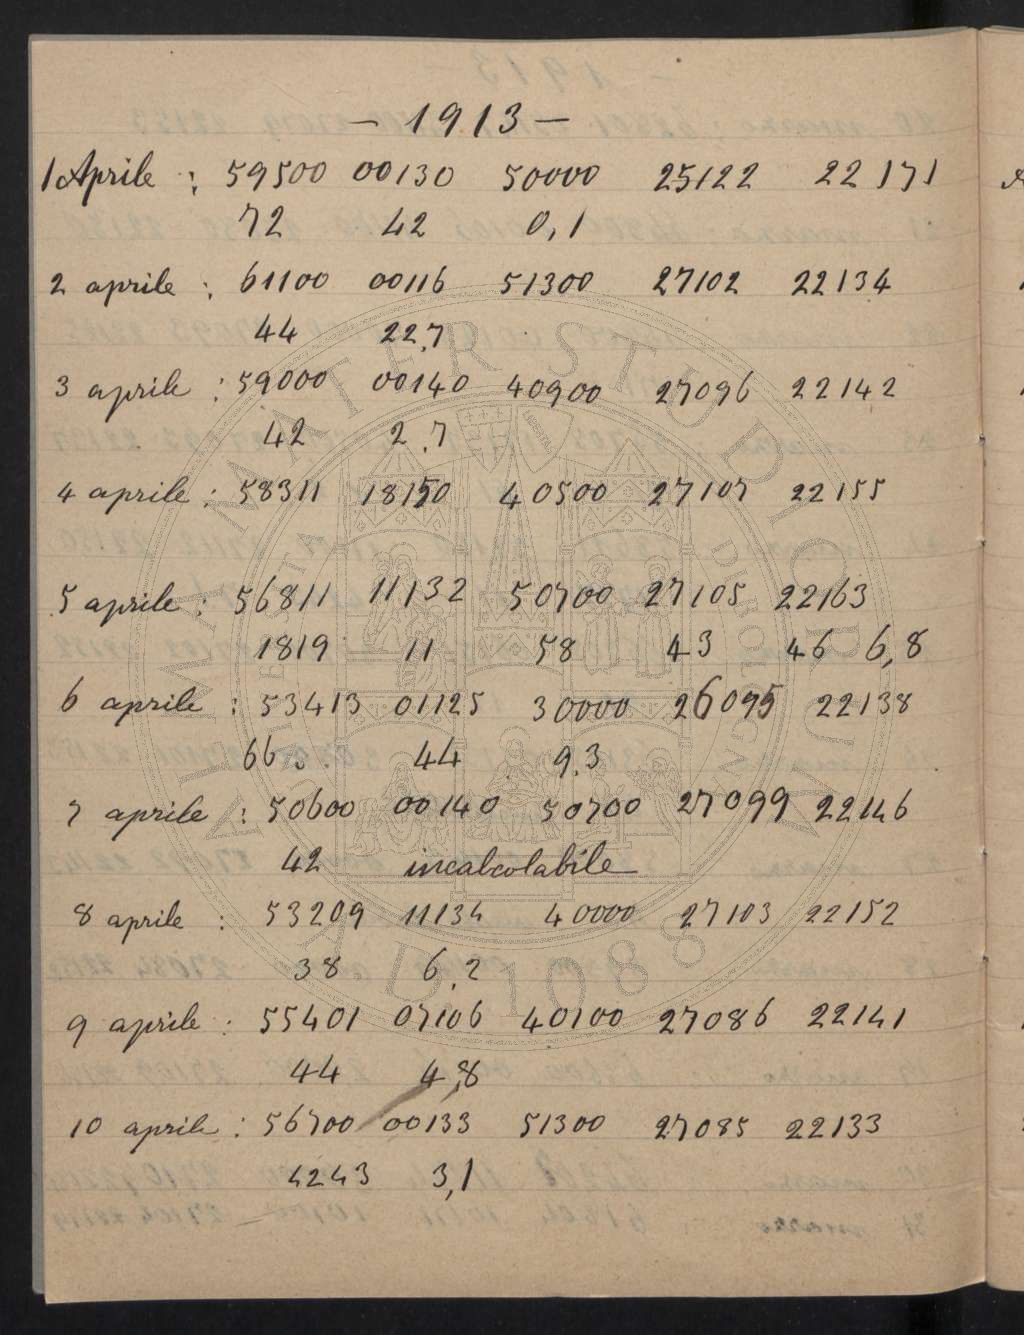 — 1913 —
1 Aprile : 59500 00130 50000 25122 22171
72 42 0,1
2 aprile : 61100 00116 51300 27102 22134
44 22,7
3 aprile : 59000 00140 40900 27096 22142
42 2,7
4 aprile : 58311 18150 40500 27107 22155
5 aprile : 56811 11132 50700 27105 22163
1819 11 58 43 46 6,8
6 aprile : 53413 01125 30000 26095 22138
66 44 9,3
7 aprile : 50600 00140 50700 27099 22146
42 incalcolabile
8 aprile : 53209 11134 40000 27103 22152
38 6,2
9 aprile : 55401 07106 40100 27086 22141
44 4,8
10 aprile : 56700 00133 51300 27085 22133
4243 3,1
ALMA MATER STUDIORUM
A.D. 1088